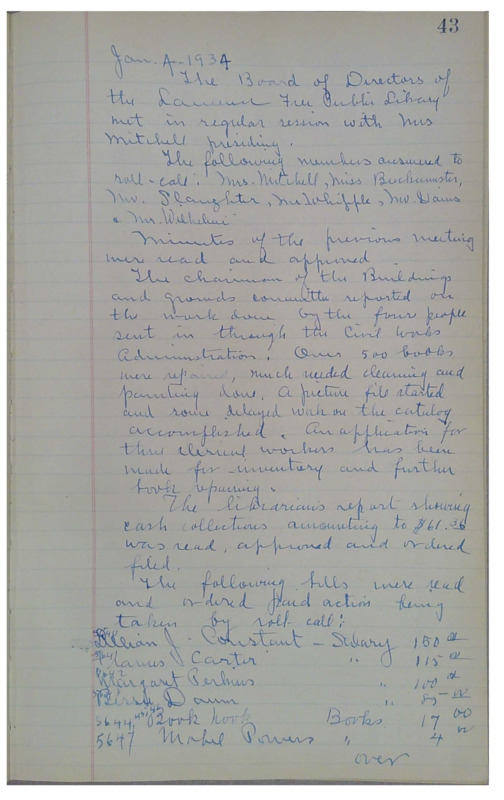 43
Jan. 4-1934
The Board of Directors of
the Lawrence Free Public Library
met in regular session with Mrs
Mitchell presiding.
The following members answered to
roll-call: Mrs. Mitchell, Miss Buckmaster,
Mr. Slaughter, Mr Whipple,
& Mr. Wilhelmi
Minutes of the previous meeting
were read and approved
The chairman of the Buildings
and grounds committee reported on
the work done by the four people
sent in through the Civil Works
Administration. Over 500 books
were repaired, much needed cleaning and
painting done, a picture file started
and some delayed work on the catalog
accomplished. An application for
three clerical workers has been
made for inventory and further
book repairing.
The librarians report showing
cash collections amounting to $61.36
was read, approved and ordered
filed.
The following bills were read
and ordered paid action being
taken by roll call:
J. Constant - Salary 150 00
Carter " 115 00
Margaret Perkins " 100 00
Dunn " 85 00
5644, Book Nook Books 17 00
5647 Mabel Powers " 4 00
over